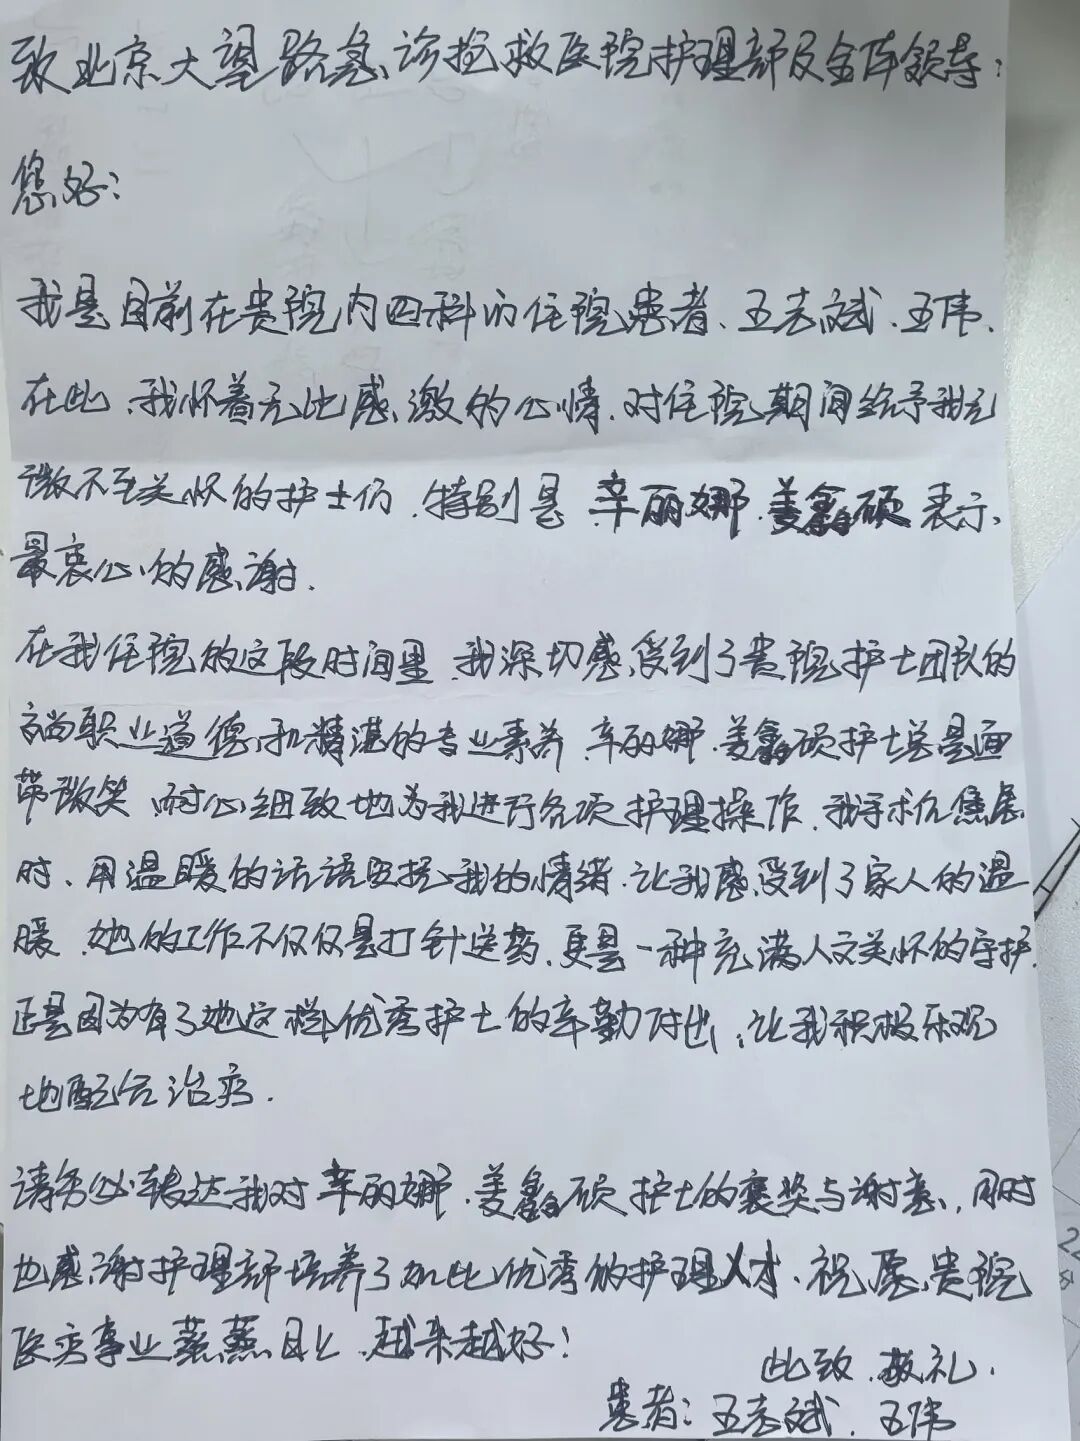 致北京大望路急诊抢救医院护理部及全体领导：
您好：
我是目前在贵院内四科的住院患者、王志斌、王伟、
在此、我怀着无比感激的心情、对住院期间给予我无
微不至关怀的护士们、特别是 辛丽娜、姜鑫硕 表示、
最衷心的感谢.
在我住院的这段时间里、我深切感受到了贵院护士团队的
高尚职业道德、和精湛的专业素养、辛丽娜、姜鑫硕护士总是面
带微笑、耐心细致地为我进行各项护理操作、我手术前焦虑
时、用温暖的话语安抚我的情绪、让我感受到了家人的温
暖、她的工作不仅仅是打针送药、更是一种充满人文关怀的守护.
正是因为有了她这样优秀护士的辛勤付出、让我积极乐观
地配合治疗.
请务必转达我对 辛丽娜、姜鑫硕 护士的褒奖与谢意、同时
也感谢护理部培养了如此优秀的护理人才、祝愿贵院
医疗事业蒸蒸日上、越来越好！
此致、敬礼.
患者：王志斌、王伟